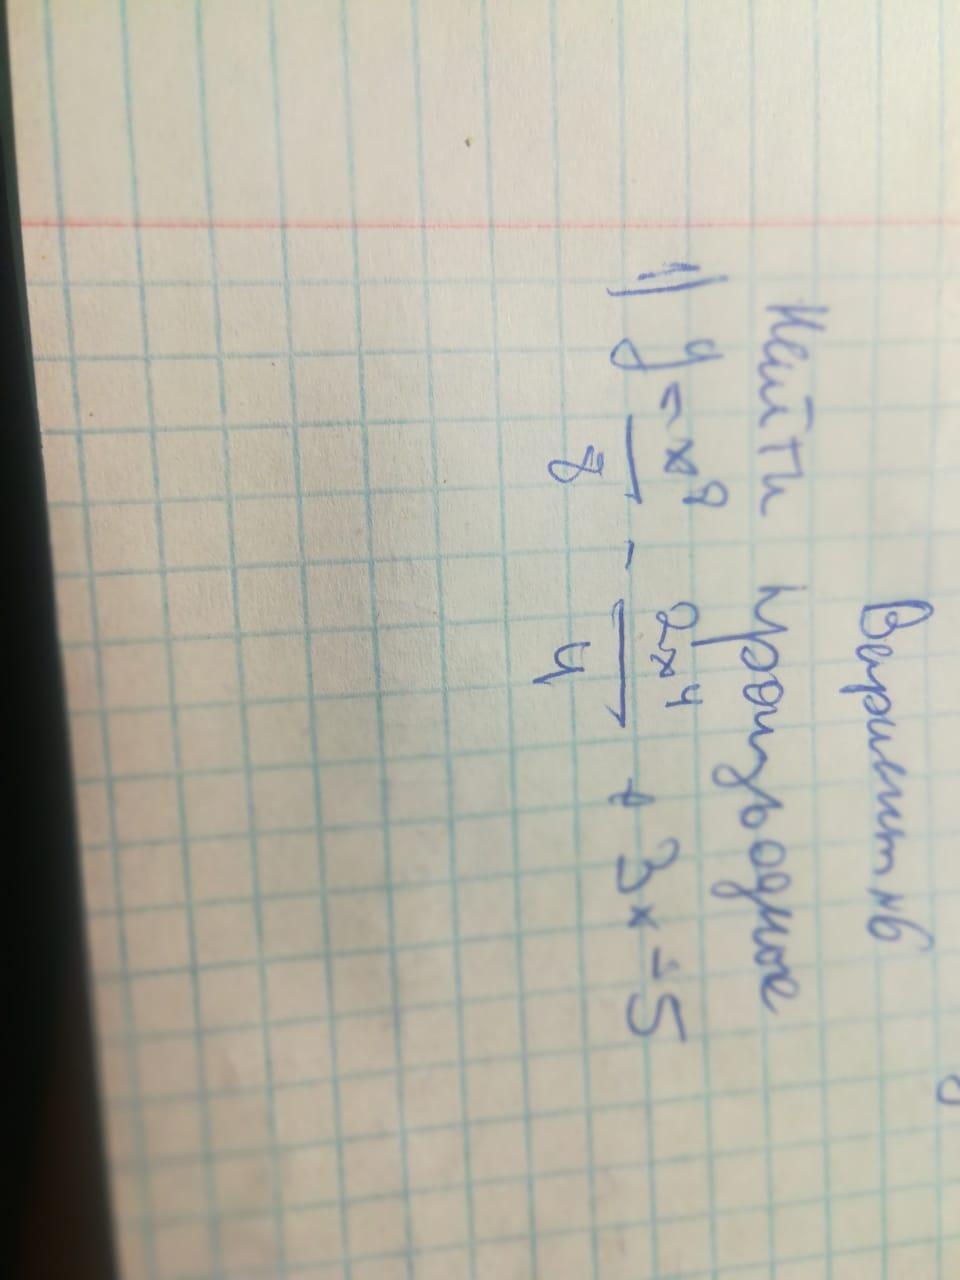 Вариант №6
Найти производные
1) y = x⁸/8 - 2x⁴/4 + 3x - 5